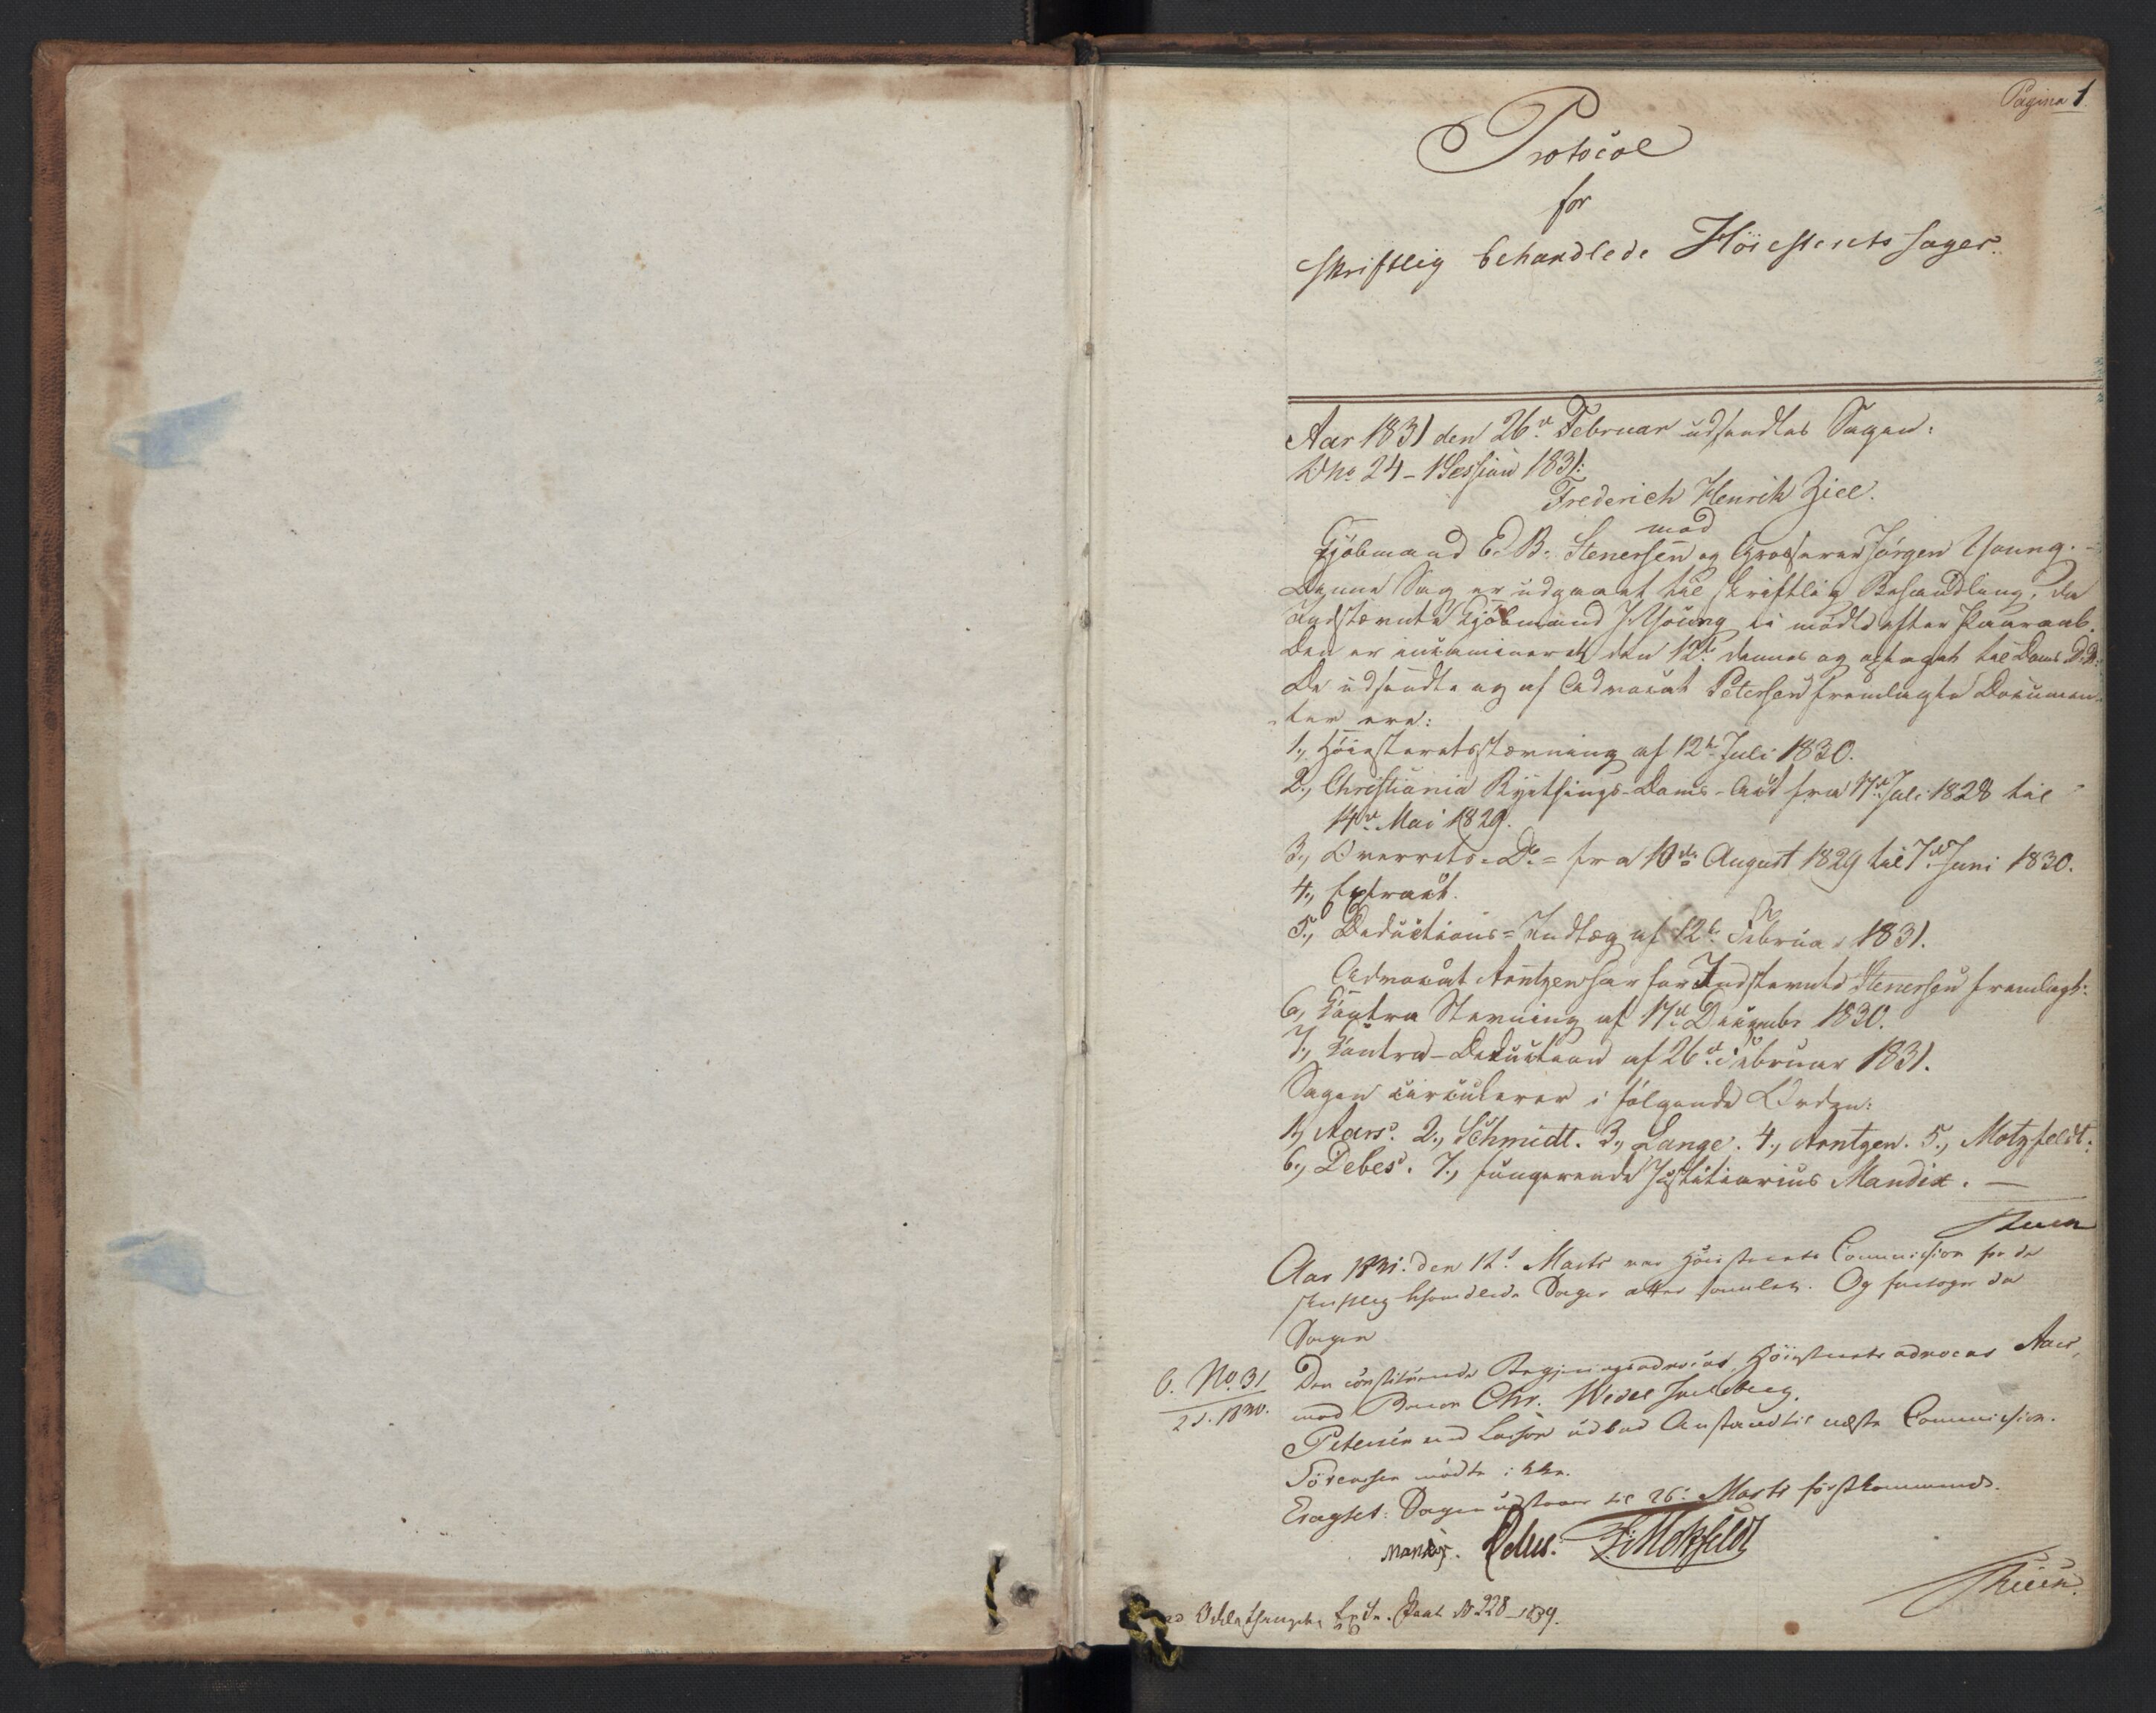 Pagina 1.
Protocol
for
skriftlig behandlede Höiesterets sager.
Aar 1831 den 26de Februar udsendtes Sagen:
No 24 - 1 Session 1831:
Frederich Henrik Ziel
mod
Kjöbmand E. B. Stenersen og Grosserer Jörgen Young.
Denne Sag er udgaaet til skriftlig Behandling, da
Indstævnte Kjöbmand J. Young ei mödte efter Paaraab.
Den er incamineret den 12te dennes og optaget til Doms D. D.
De udsendte og af Advocat Petersen fremlagte Documen-
ter ere:
1., Höiesteretsstævning af 12te Juli 1830.
2., Christiania Byethings-Doms-Act fra 17de Juli 1828 til
14de Mai 1829.
3., Overrets-Do = fra 10de August 1829 til 7de Juni 1830.
4., Extract.
5., Deductions-Indlæg af 12te Februar 1831.
Advocat Arntzen har for Indstevnte Stenersen fremlagt:
6., Contra Stevning af 17de Decembr 1830.
7., Contra-Deduction af 26de Februar 1831.
Sagen circulerer i fölgende Orden:
1., Aars. 2., Schmidt. 3., Lange. 4., Arntzen. 5., Motzfeldt.
6., Debes. 7., fungerende Justitiarius Mandix. —
Aar 1831. den 12t Marts var Höiesterets Commission for de
skriftlig behandlede Sager atter samlet. Og foretoges da
Sagen
O. No. 31
2 S. 1830.
Den constituerede Regjeringsadvocat, Höiesteretsadvocat Aars,
mod Baron Chr. Wedel Jarlsberg.
Petersen ved Lasson udbad Anstand til næste Commission.
Sörenssen mödte ikke.
Eragtet: Sagen udstaaer til 26. Marts förstkommende.
Mandix. Debes. F. Motzfeldt
No 228 - 1839.